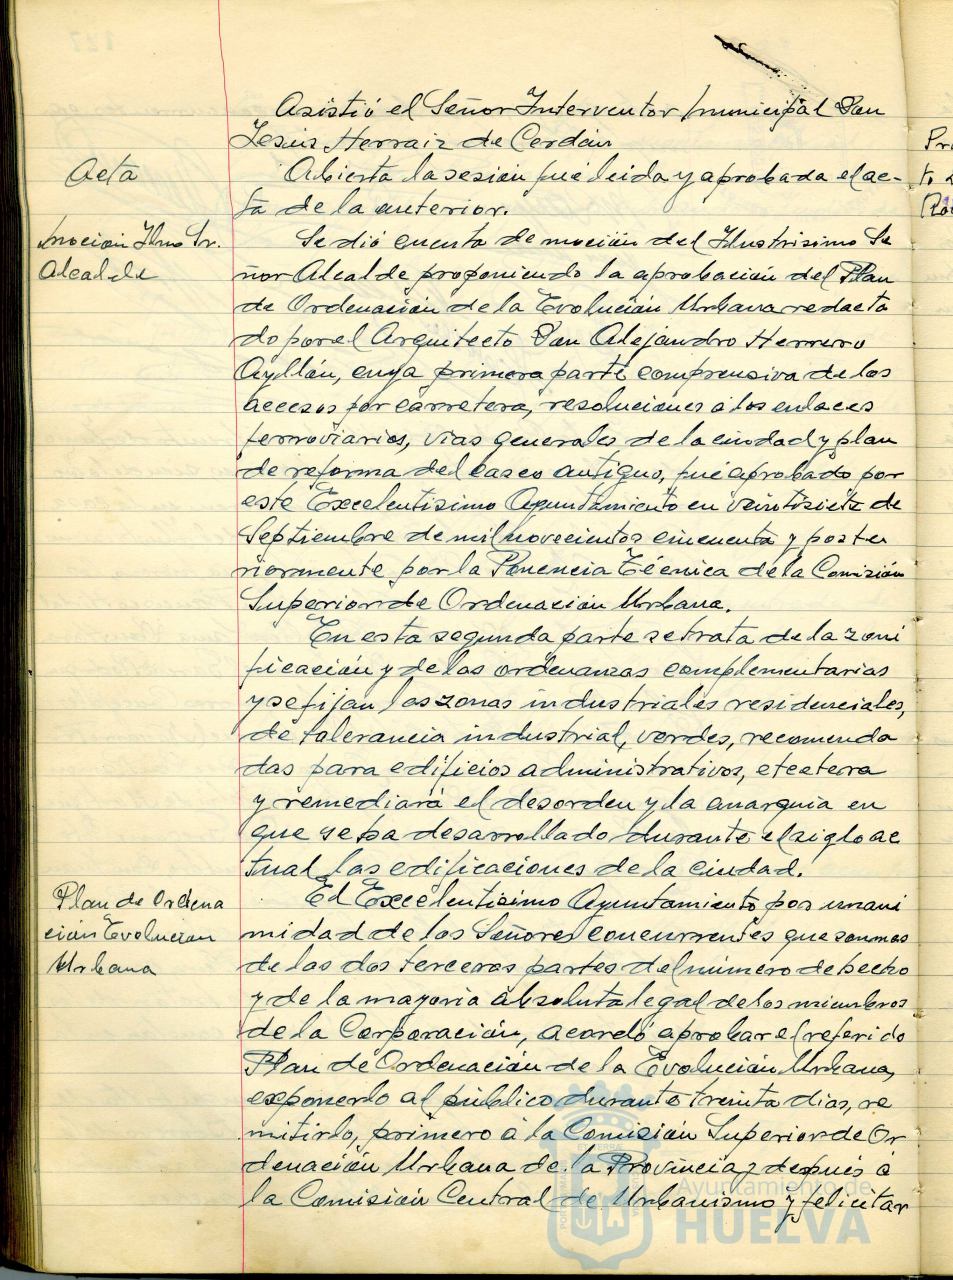 Asistió el Señor Interventor municipal Don
Jesús Herraiz de Cerdán
Acta
Abierta la sesión fué leida y aprobada el ac-
ta de la anterior.
moción Ilmo Sr.
Alcalde
Se dió cuenta de moción del Ilustrisimo Se
ñor Alcalde proponiendo la aprobación del Plan
de Ordenación de la Evolución Urbana redacta
do por el Arquitecto Don Alejandro Herrero
Ayllón, cuya primera parte comprensiva de los
accesos por carretera, resoluciones a los enlaces
ferroviarios, vias generales de la ciudad y plan
de reforma del casco antiguo, fué aprobado por
este Excelentisimo Ayuntamiento en veintisiete de
Septiembre de mil novecientos cincuenta y poste
riormente por la Ponencia Técnica de la Comisión
Superior de Ordenación Urbana.
En esta segunda parte se trata de la zoni
ficación y de las ordenanzas complementarias
y se fijan las zonas industriales residenciales,
de tolerancia industrial, verdes, recomenda
das para edificios administrativos, etcetera
y remediará el desorden y la anarquia en
que se ha desarrollado durante el siglo ac
tual las edificaciones de la ciudad.
Plan de Ordena
ción Evolución
Urbana
El Excelentisimo Ayuntamiento por unani
midad de los Señores concurrentes que son mas
de las dos terceras partes del número de hecho
y de la mayoria absoluta legal de los miembros
de la Corporación, acordó aprobar el referido
Plan de Ordenación de la Evolución Urbana,
exponerlo al público durante treinta dias, re
mitirlo, primero á la Comisión Superior de Or
denación Urbana de la Provincia y después á
la Comisión Central de Urbanismo y felicitar
Ayuntamiento de
HUELVA